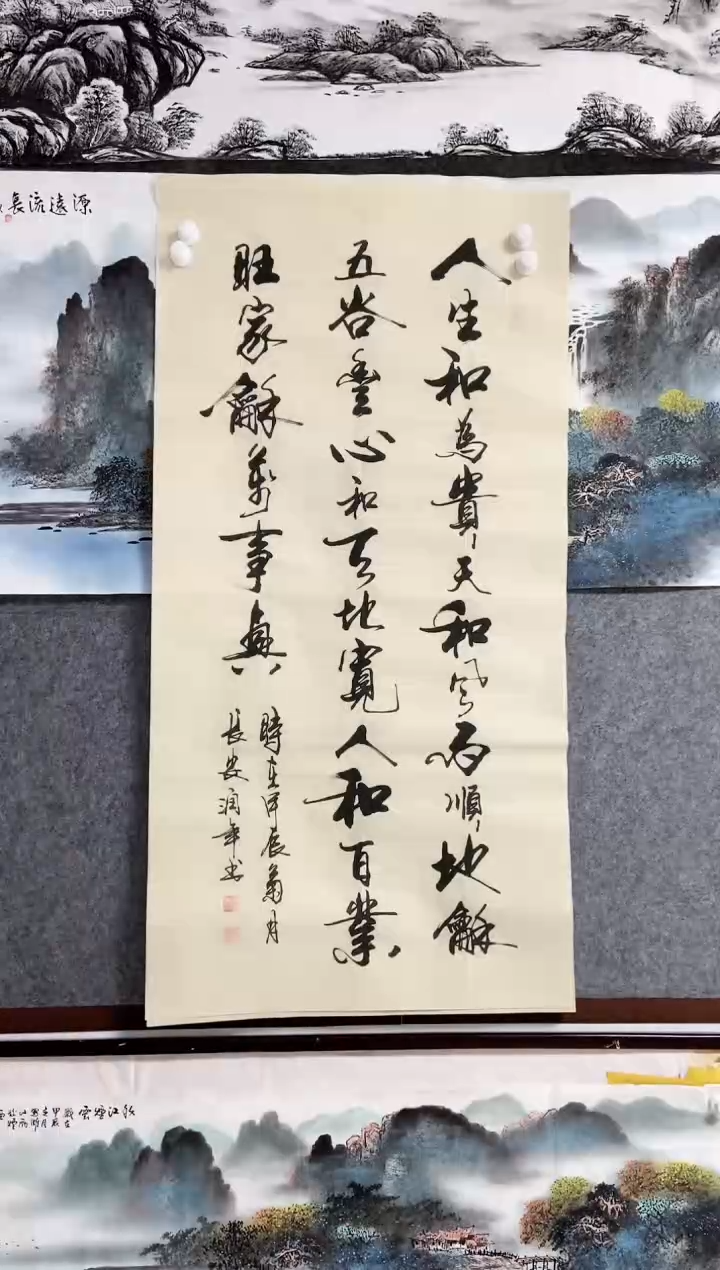 人生和為貴天和風雨順地龢
五谷豐心和天地寬人和百業
旺家龢萬事興
時在甲辰菊月
長安润年书
源遠流長